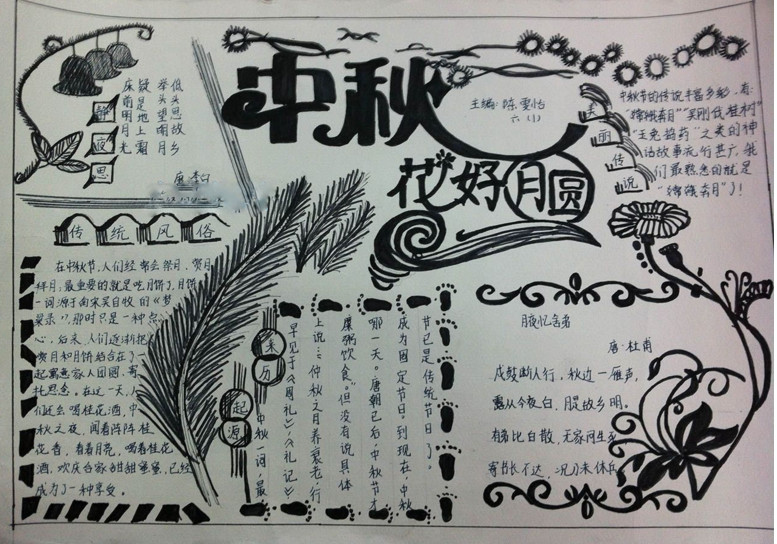 中秋
花好月圆
主编:陈雯怡
六(1)
静夜思
床前明月光
疑是地上霜
举头望明月
低头思故乡
唐 李白
美丽传说
中秋节的传说丰富多彩,有:
“嫦娥奔月”“吴刚伐桂树”
“玉兔捣药”之类的神
话故事流行甚广,我
们最熟悉的就是
“嫦娥奔月”了!
传统风俗
在中秋节,人们经常会祭月、赏月
拜月,最重要的就是吃月饼了,月饼
一词源于南宋吴自牧的《梦
粱录》,那时只是一种点
心,后来,人们逐渐把
赏月和月饼结合在了一
起寓意家人团圆,寄
托思念。在这一天,人
们还会喝桂花酒,中
秋之夜,闻着阵阵桂
花香,看着月亮,喝着桂花
酒,欢庆合家甜甜蜜蜜,已经
成为了一种享受。
来历
起源
中秋一词,最
早见于《周礼》,《礼记》
上说:“仲秋之月养衰老,行
糜粥饮食”但没有说具体
哪一天。唐朝已后,中秋节才
成为固定节日,到现在,中秋
节已是传统节日了。
月夜忆舍弟
唐·杜甫
戍鼓断人行,秋边一雁声,
露从今夜白,月是故乡明。
有弟皆分散,无家问生死
寄书长不达,况乃未休兵